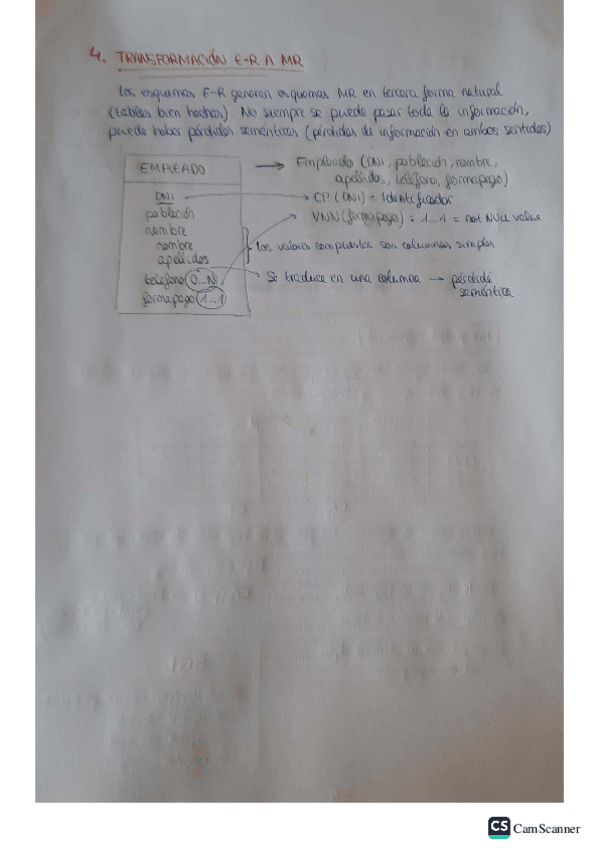 4. TRANSFORMACIÓN E-R A MR
Los esquemas E-R generan esquemas MR en tercera forma natural
(tablas bien hechas). No siempre se puede pasar toda la información,
puede haber pérdidas semánticas (pérdidas de información en ambos sentidos).
EMPLEADO → Empleado (DNI, población, nombre,
apellidos, teléfono, formapago)
DNI → CP (DNI) = Identificador
población → VNN (formapago) : 1...1 = not NULL value
nombre
nombre } los valores compuestos son columnas simples
apellidos
teléfono (0...N) → Se traduce en una columna → pérdida
formapago (1...1) semántica
CS CamScanner